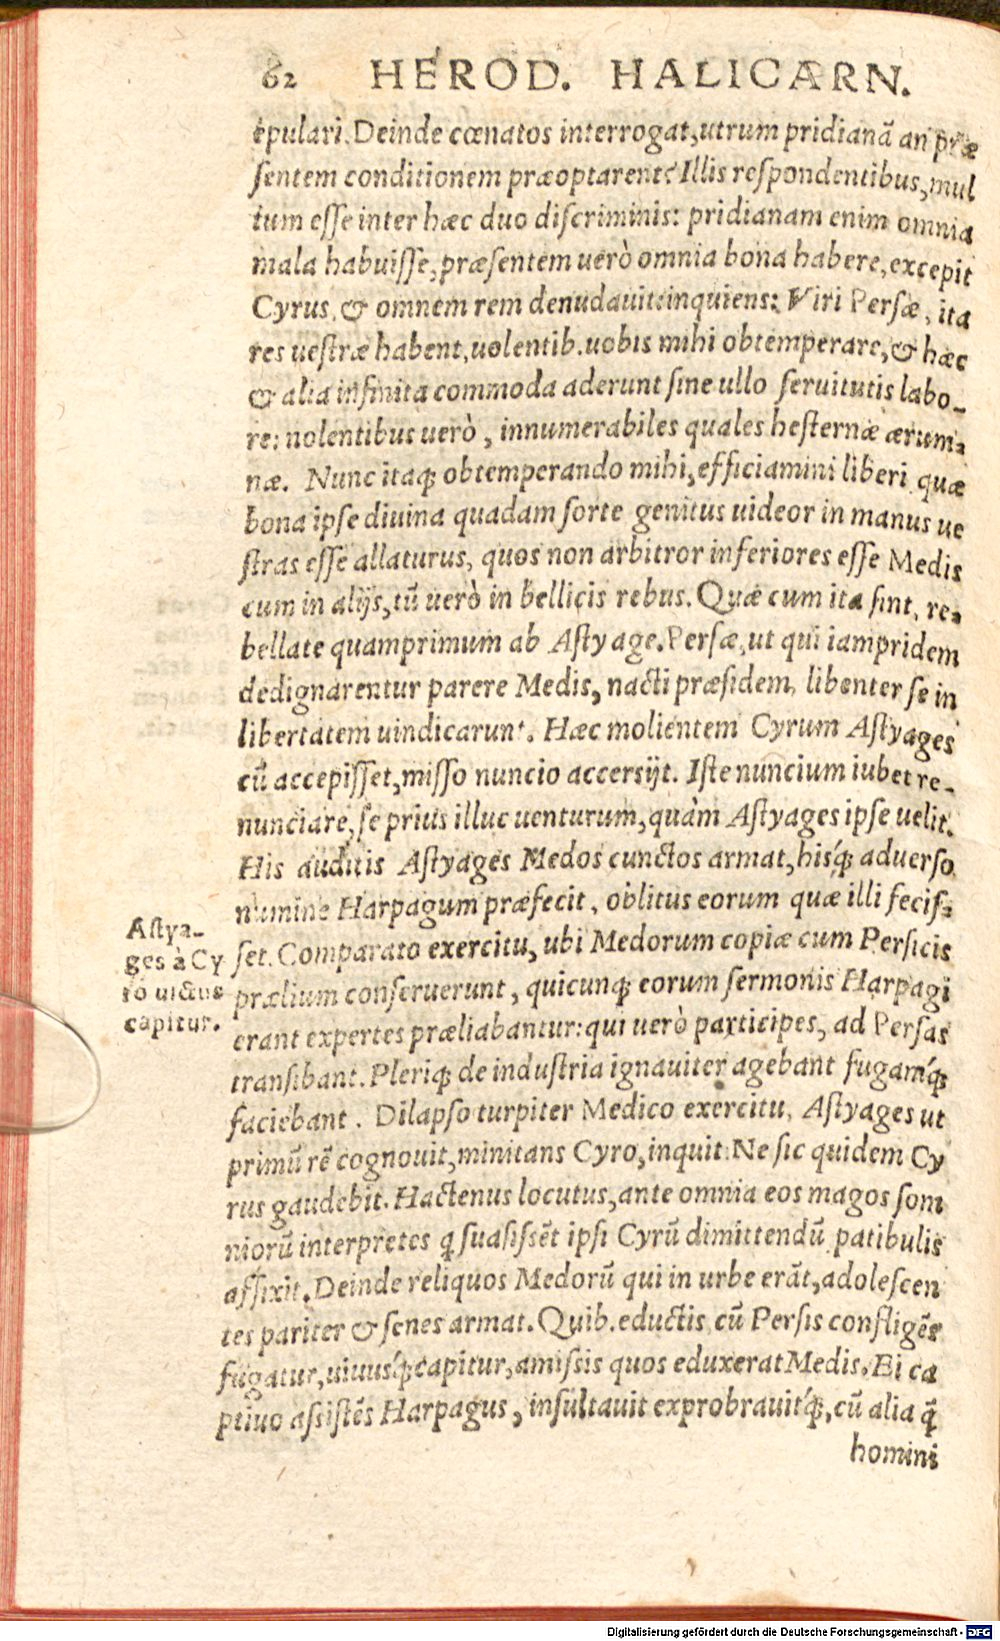 62 HEROD. HALICARN.
epulari. Deinde cœnatos interrogat, utrum pridianã an præ
ſentem conditionem præoptarent? Illis reſpondentibus, mul
tum eſſe inter hæc duo diſcriminis: pridianam enim omnia
mala habuiſſe, præſentem uerò omnia bona habere, excepit
Cyrus, & omnem rem denudauit inquiens: Viri Perſæ, ita
res ueſtræ habent, uolentib. uobis mihi obtemperare, & hæc
& alia infinita commoda aderunt ſine ullo ſeruitutis labo-
re: nolentibus uerò, innumerabiles quales heſternæ ærum-
næ. Nunc itaq; obtemperando mihi, efficiamini liberi quæ
bona ipſe diuina quadam ſorte genitus uideor in manus ue
ſtras eſſe allaturus, quos non arbitror inferiores eſſe Medis
cum in alijs, tũ uerò in bellicis rebus. Quæ cum ita ſint, re-
bellate quamprimum ab Aſtyage. Perſæ, ut qui iampridem
dedignarentur parere Medis, nacti præſidem, libenter ſe in
libertatem uindicarunt. Hæc molientem Cyrum Aſtyages
cũ accepiſſet, miſſo nuncio accerſijt. Iſte nuncium iubet re-
nunciare, ſe prius illuc uenturum, quàm Aſtyages ipſe uelit.
His auditis Aſtyages Medos cunctos armat, hisq́; aduerſo
numine Harpagum præfecit, oblitus eorum quæ illi feciſ-
ſet. Comparato exercitu, ubi Medorum copiæ cum Perſicis
prælium conſeruerunt, quicunq; eorum ſermonis Harpagi
erant expertes præliabantur: qui uerò participes, ad Perſas
tranſibant. Pleriq; de induſtria ignauiter agebant fugamq́;
faciebant. Dilapſo turpiter Medico exercitu, Aſtyages ut
primũ rẽ cognouit, minitans Cyro, inquit: Ne ſic quidem Cy
rus gaudebit. Hactenus locutus, ante omnia eos magos ſom
niorũ interpretes q ſuaſiſsẽt ipſi Cyrũ dimittendũ patibulis
affixit. Deinde reliquos Medorũ qui in urbe erãt, adoleſcen
tes pariter & ſenes armat. Quib. eductis cũ Perſis confligẽs
fugatur, uiuusq́; capitur, amiſsis quos eduxerat Medis. Ei ca
ptiuo aſsiſtẽs Harpagus, inſultauit exprobrauitq́;, cũ alia q̃
homini
Aſtya-
ges à Cy
ro uictus
capitur.
Digitalisierung gefördert durch die Deutsche Forschungsgemeinschaft - DFG